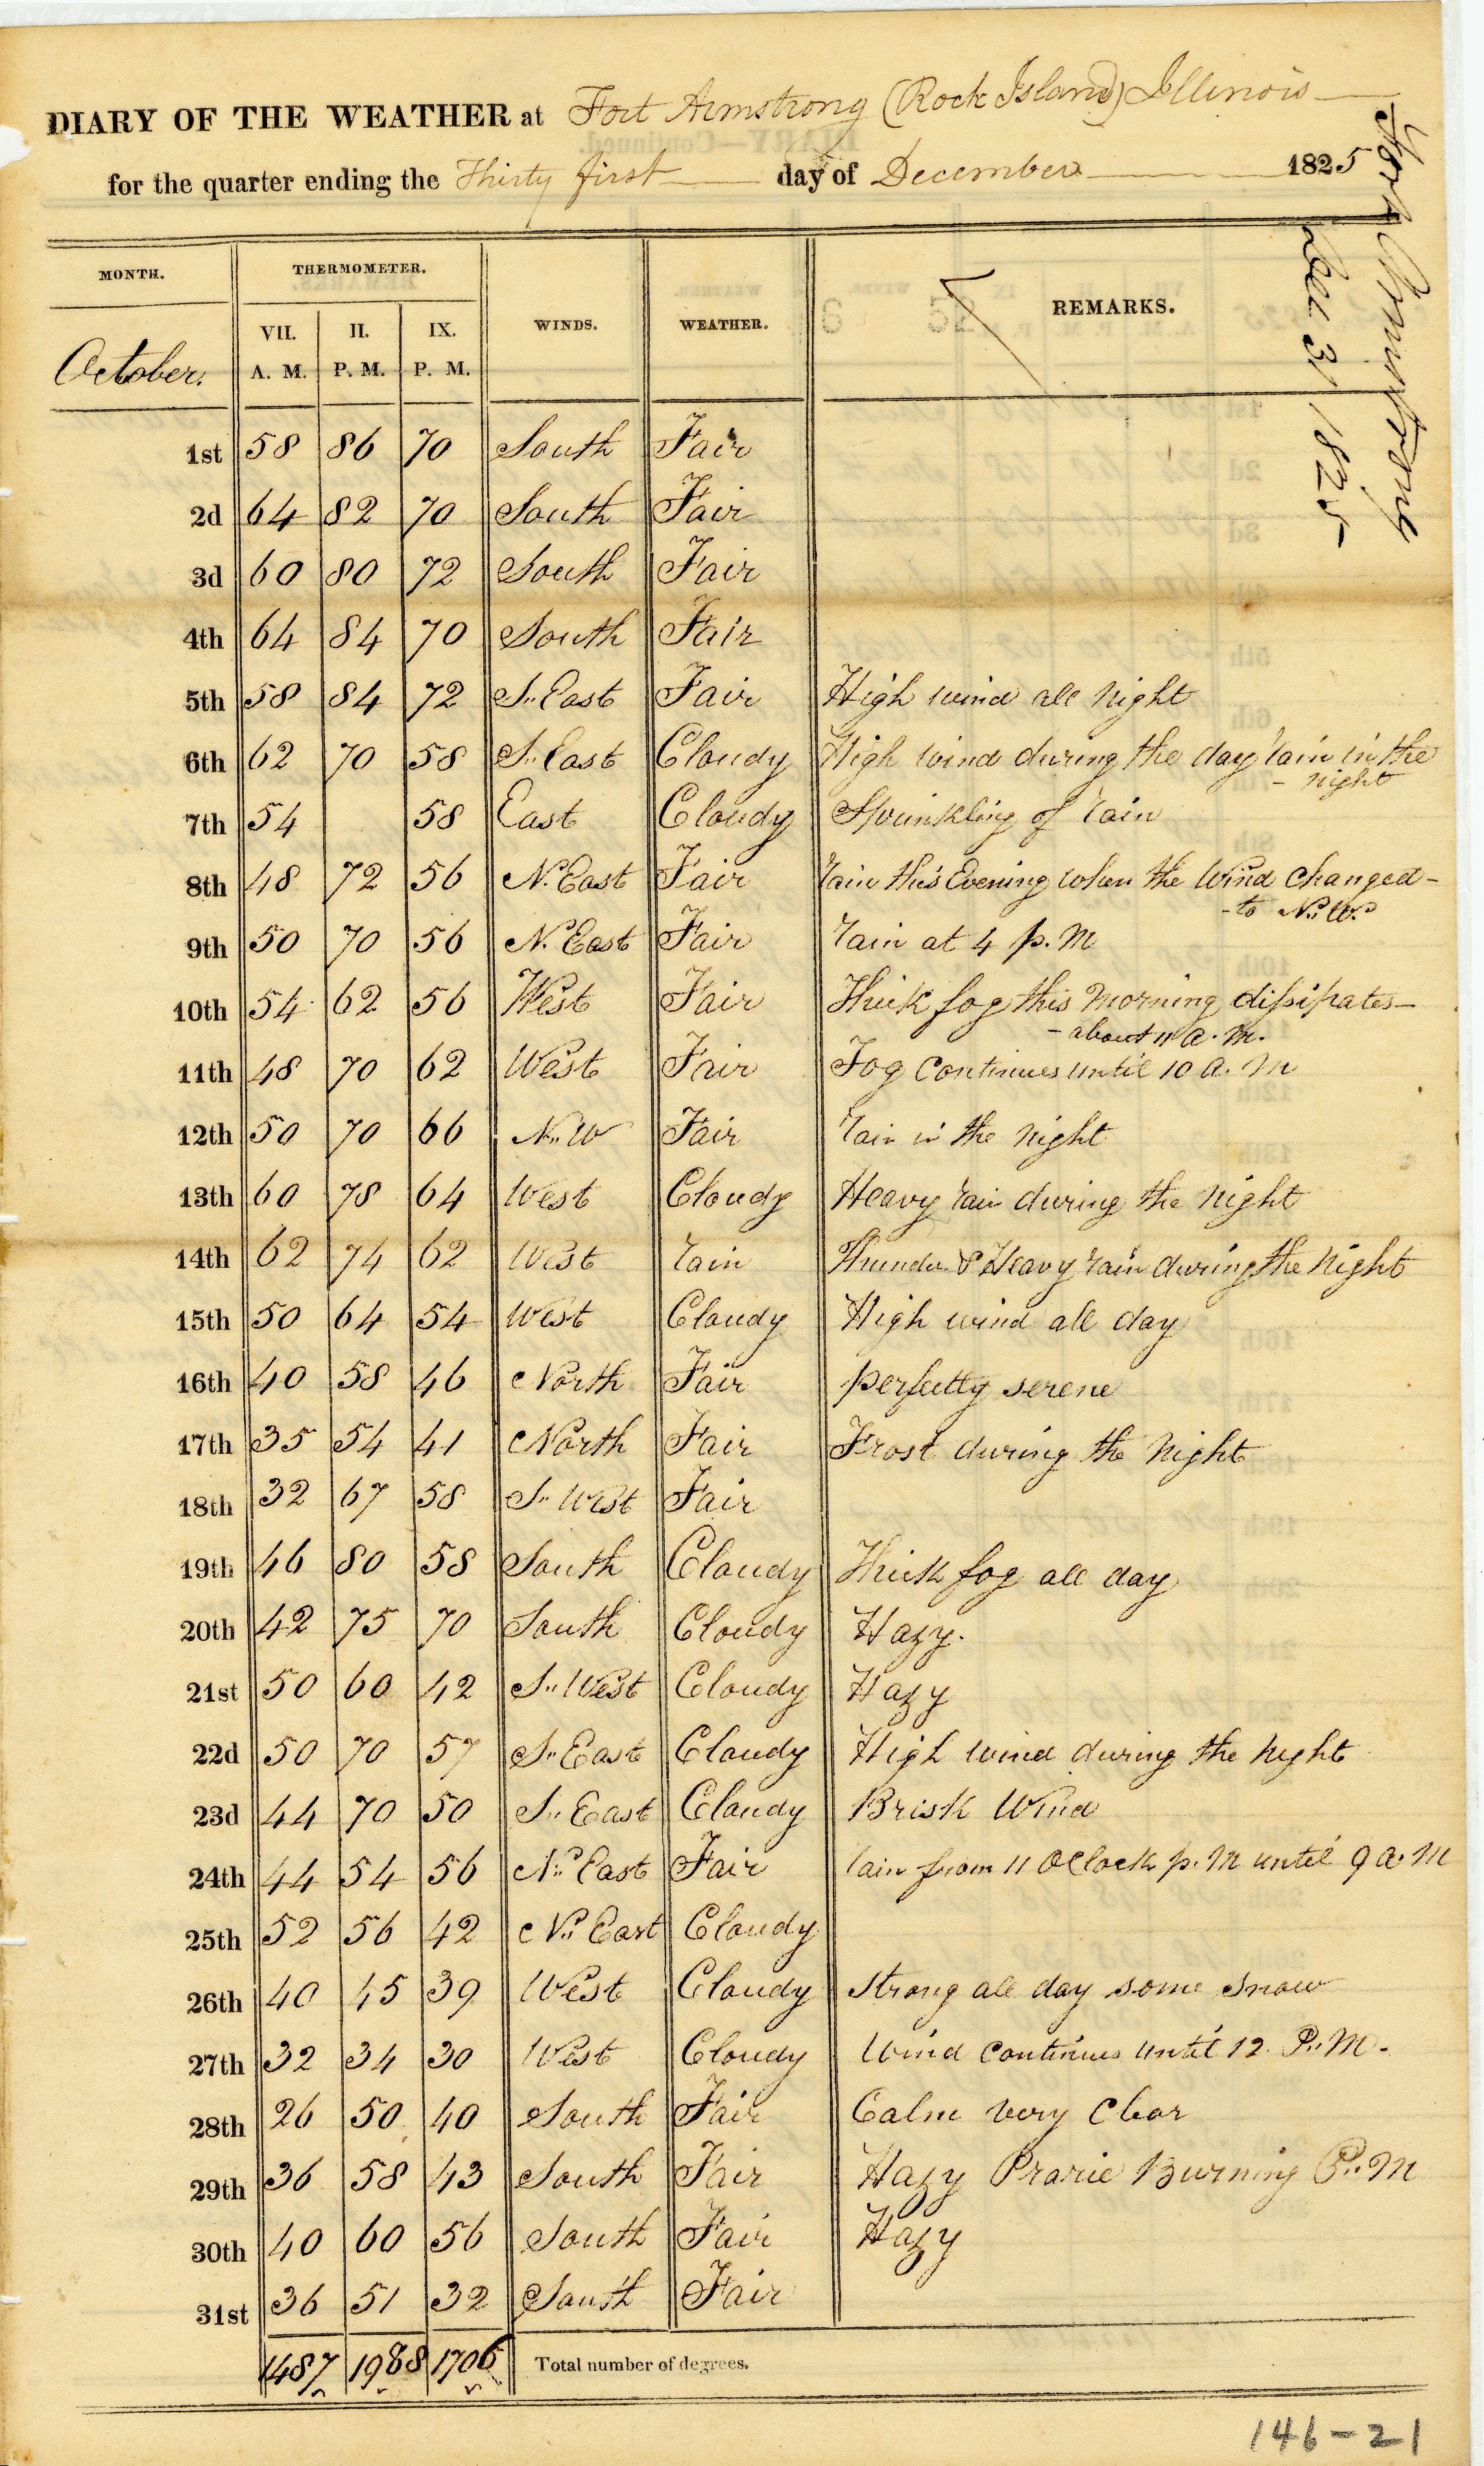 DIARY OF THE WEATHER at Fort Armstrong (Rock Island) Illinois
for the quarter ending the Thirty first day of December 1825
Fort Armstrong
Dec 31 1825
MONTH. THERMOMETER. WINDS. WEATHER. REMARKS.
October. VII. A. M. II. P. M. IX. P. M.
6 52
1st 58 86 70 South Fair
2d 64 82 70 South Fair
3d 60 80 72 South Fair
4th 64 84 70 South Fair
5th 58 84 72 S. East Fair High wind all night
6th 62 70 58 S. East Cloudy High wind during the day rain in the
- night
7th 54 58 East Cloudy Sprinkling of rain
8th 48 72 56 N. East Fair rain this Evening when the Wind changed -
- to N. W.
9th 50 70 56 N. East Fair rain at 4 p. M
10th 54 62 56 West Fair Thick fog this morning dissipates -
- about 11 a. m.
11th 48 70 62 West Fair Fog continues until 10 a. m
12th 50 70 66 N. W Fair rain in the night
13th 60 78 64 West Cloudy Heavy rain during the night
14th 62 74 62 West rain Thunder & Heavy rain during the night
15th 50 64 54 West Cloudy High wind all day
16th 40 58 46 North Fair perfectly serene
17th 35 54 41 North Fair Frost during the night
18th 32 67 58 S. West Fair
19th 46 80 58 South Cloudy Thick fog all day
20th 42 75 70 South Cloudy Hazy.
21st 50 60 42 S. West Cloudy Hazy
22d 50 70 57 S. East Cloudy High wind during the night
23d 44 70 50 S. East Cloudy Brisk Wind
24th 44 54 56 N. East Fair rain from 11 OClock p. M until 9 a. M
25th 52 56 42 N. East Cloudy
26th 40 45 39 West Cloudy strong all day some snow
27th 32 34 30 West Cloudy Wind continues until 12 P. M.
28th 26 50 40 South Fair Calm very clear
29th 36 58 43 South Fair Hazy Prarie Burning P. M
30th 40 60 56 South Fair Hazy
31st 36 51 32 South Fair
1487 1988 1706 Total number of degrees.
146-21